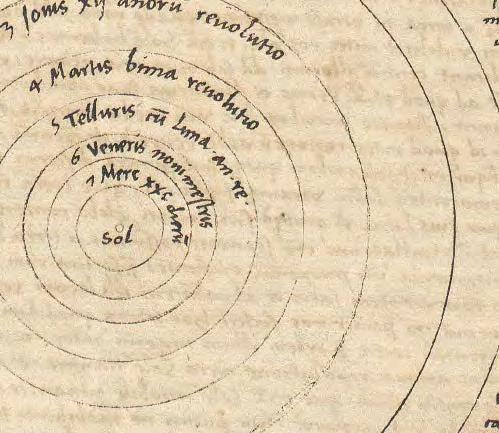 3 Jouis xij anorū reuolutio
4 Martis bima reuolutio
5 Telluris cū Luna · an · re ·
6 Veneris nonimestris
7 Merc xxc dierū
Sol